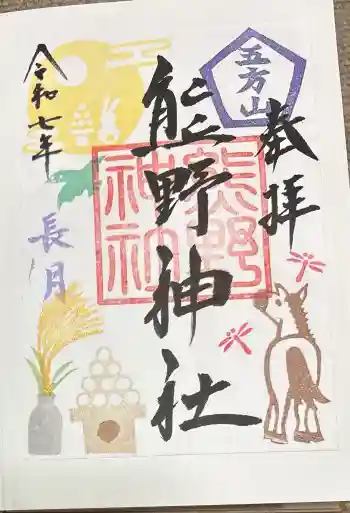 五方山
奉拝
熊野神社
熊野神社
令和七年
長月